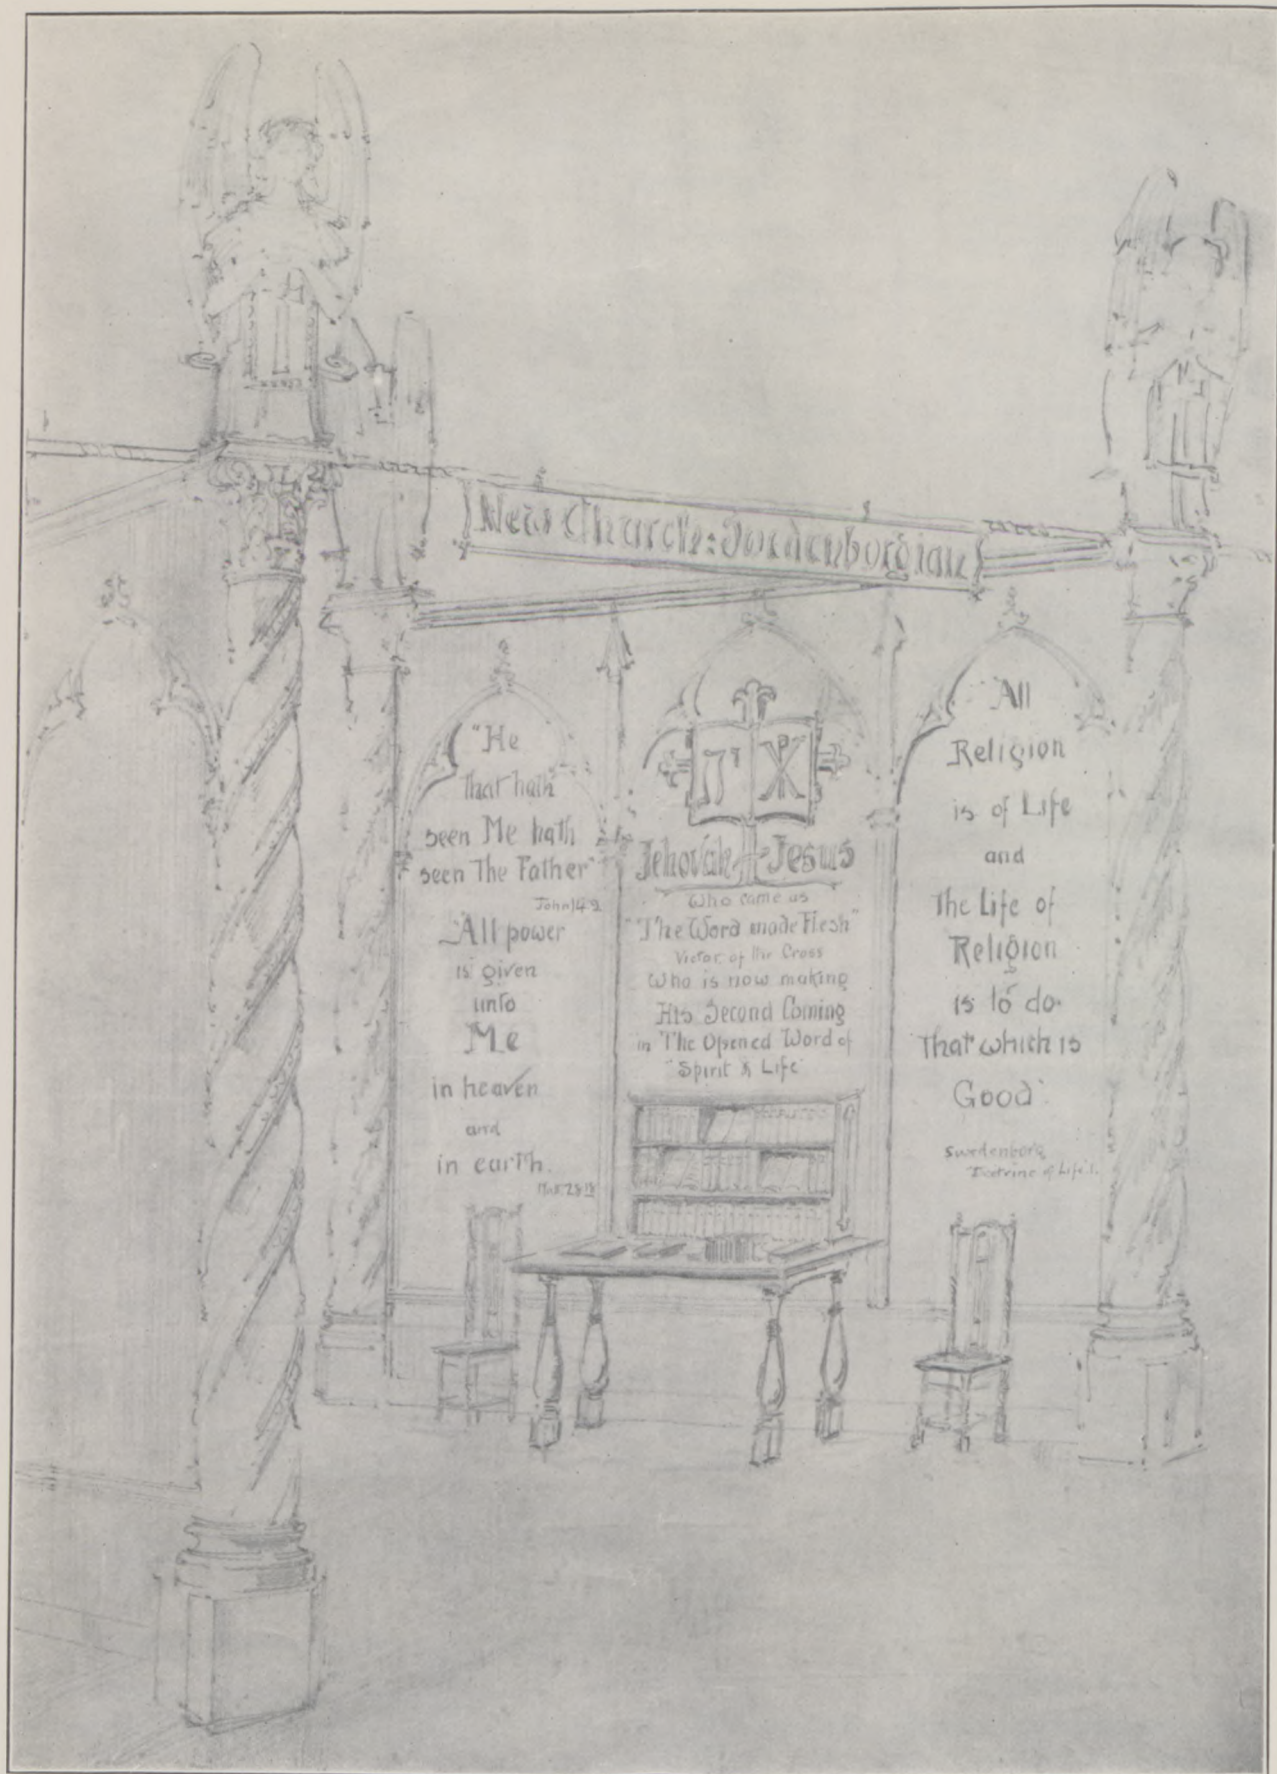 New Church: Swedenborgian
"He
That hath
seen Me hath
seen The Father"
John 14 9
"All power
is given
unto
Me
in heaven
and
in earth.
Mat. 28 18
Jehovah Jesus
Who came as
"The Word made Flesh"
Victor of the Cross
Who is now making
His Second Coming
in The Opened Word of
"Spirit & Life"
"All
Religion
is of Life
and
The Life of
Religion
is to do
That which is
Good"
Swedenborg
"Doctrine of Life" 1.